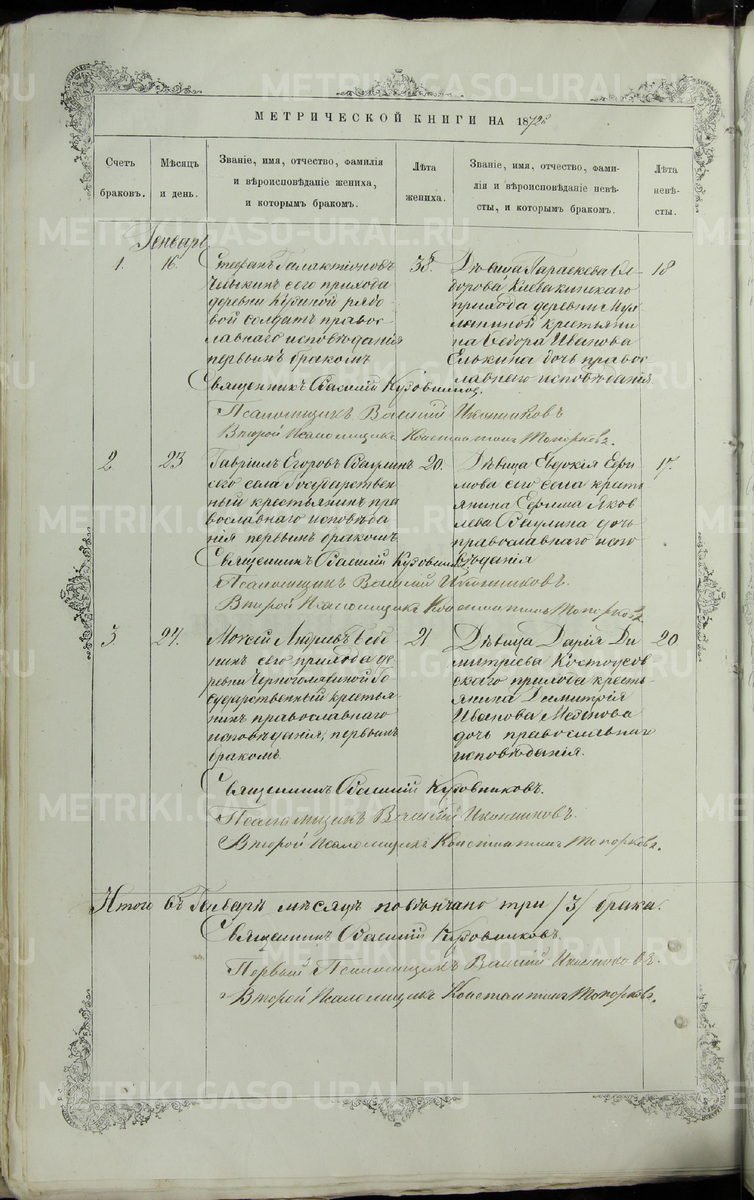 МЕТРИЧЕСКОЙ КНИГИ НА 1872
Счетъ браковъ.
Мѣсяцъ и день.
Званіе, имя, отчество, фамилія
и вѣроисповѣданіе жениха,
и которымъ бракомъ.
Лѣта жениха.
Званіе, имя, отчество, фами-
лія и вѣроисповѣданіе невѣ-
сты, и которымъ бракомъ.
Лѣта невѣ-
сты.
Генварь
1.
16.
Стефанъ Галактіоновъ
сего прихода
деревни рядо-
вой солдатъ правос
лавнаго исповѣданія
первымъ бракомъ
38.
Дѣвица Параскева Ѳе-
дорова
прихода деревни
крестьяни
на Ѳедора Иванова
Елькина дочь правос
лавнаго исповѣданія
18
Священникъ Василій Кудовниковъ.
Псаломщикъ Василій Иконниковъ
Второй Псаломщикъ Константинъ Топорковъ.
2.
23
Гавріилъ Егоровъ Ваулинъ
сего села Государствен
ный крестьянинъ пра
вославнаго исповѣда
нія первымъ бракомъ
20.
Дѣвица Евдокія Ефи
мова сего села кресть
янина Ефима Яков
лева Ваулина дочь
православнаго испо
вѣданія
17.
Священникъ Василій Кудовниковъ
Псаломщикъ Василій Иконниковъ.
Второй Псаломщикъ Константинъ Топорковъ
3
24.
Моисей Андреевъ
сего прихода де
ревни Го-
сударственный кресть-
янинъ православнаго
исповѣданія, первымъ
бракомъ.
21
Дѣвица Дарія Ди
митріева Костоусов
скаго прихода кресть-
янина Димитрія
Иванова
дочь православнаго
исповѣданія.
20
Священникъ Василій Кудовниковъ.
Псаломщикъ Василій Иконниковъ.
Второй Псаломщикъ Константинъ Топорковъ.
Итого въ Генварѣ мѣсяцѣ повѣнчано три /3/ брака.
Священникъ Василій Кудовниковъ.
Первый Псаломщикъ Василій Иконниковъ.
Второй Псаломщикъ Константинъ Топорковъ.
METRIKI.GASO-URAL.RU